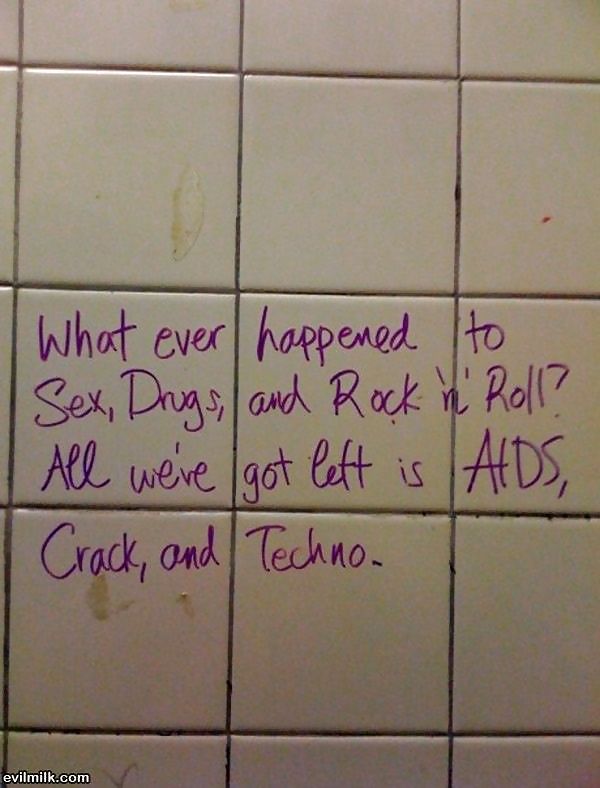 What ever happened to
Sex, Drugs, and Rock 'n' Roll?
All we've got left is AIDS,
Crack, and Techno.
evilmilk.com